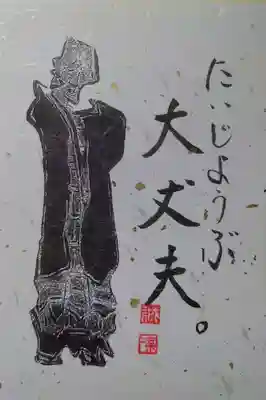 だいじょうぶ
大丈夫。